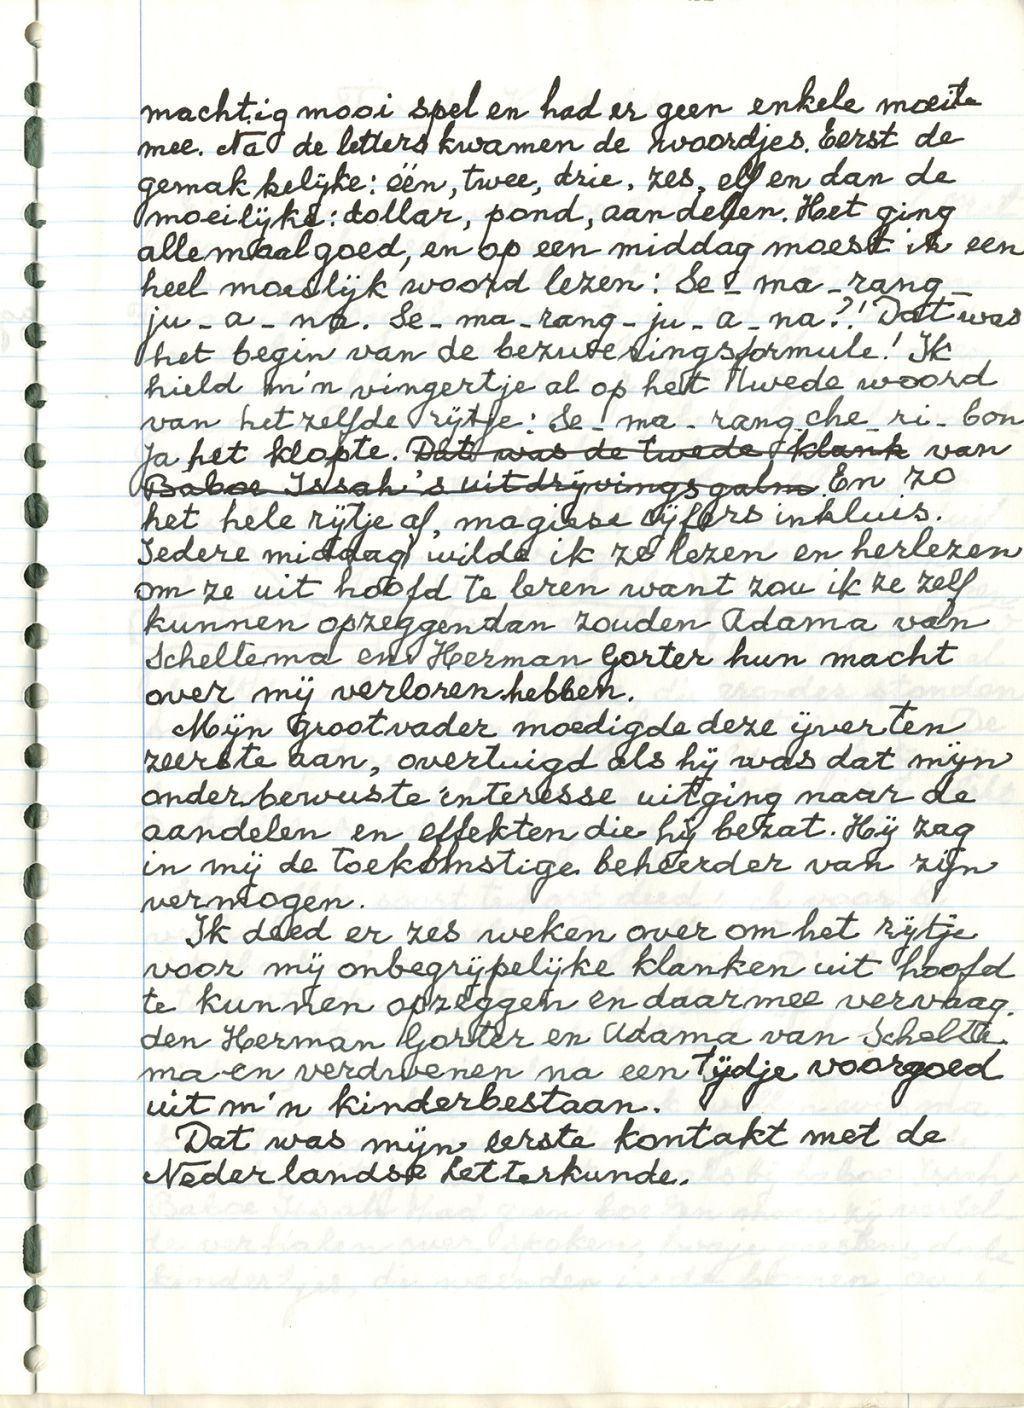 machtig mooi spel en had er geen enkele moeite
mee. Na de letters kwamen de woordjes. Eerst de
gemakkelijke: één, twee, drie, zes, elf en dan de
moeilijke: dollar, pond, aandelen. Het ging
allemaal goed, en op een middag moest ik een
heel moeilijk woord lezen: Se_ma_rang_
ju_a_na. Se_ma_rang_ju_a_na?! Dat was
het begin van de bezweringsformule! Ik
hield m'n vingertje al op het twede woord
van hetzelfde rijtje: Se_ma_rang che_ri_bon
Ja het klopte. Dat was de twede klank van
Baboe Issah's uitdrijvingsgalm. En zo
het hele rijtje af, magiese cijfers inkluis.
Iedere middag wilde ik ze lezen en herlezen
om ze uit hoofd te leren want zou ik ze zelf
kunnen opzeggen dan zouden Adama van
Scheltema en Herman Gorter hun macht
over mij verloren hebben.
Mijn Grootvader moedigde deze ijver ten
zeerste aan, overtuigd als hij was dat mijn
onderbewuste interesse uitging naar de
aandelen en effekten die hij bezat. Hij zag
in mij de toekomstige beheerder van zijn
vermogen.
Ik deed er zes weken over om het rijtje
voor mij onbegrijpelijke klanken uit hoofd
te kunnen opzeggen en daarmee vervaag-
den Herman Gorter en Adama van Schelte-
ma en verdwenen na een tijdje voorgoed
uit m'n kinderbestaan.
Dat was mijn eerste kontakt met de
Nederlandse Letterkunde.